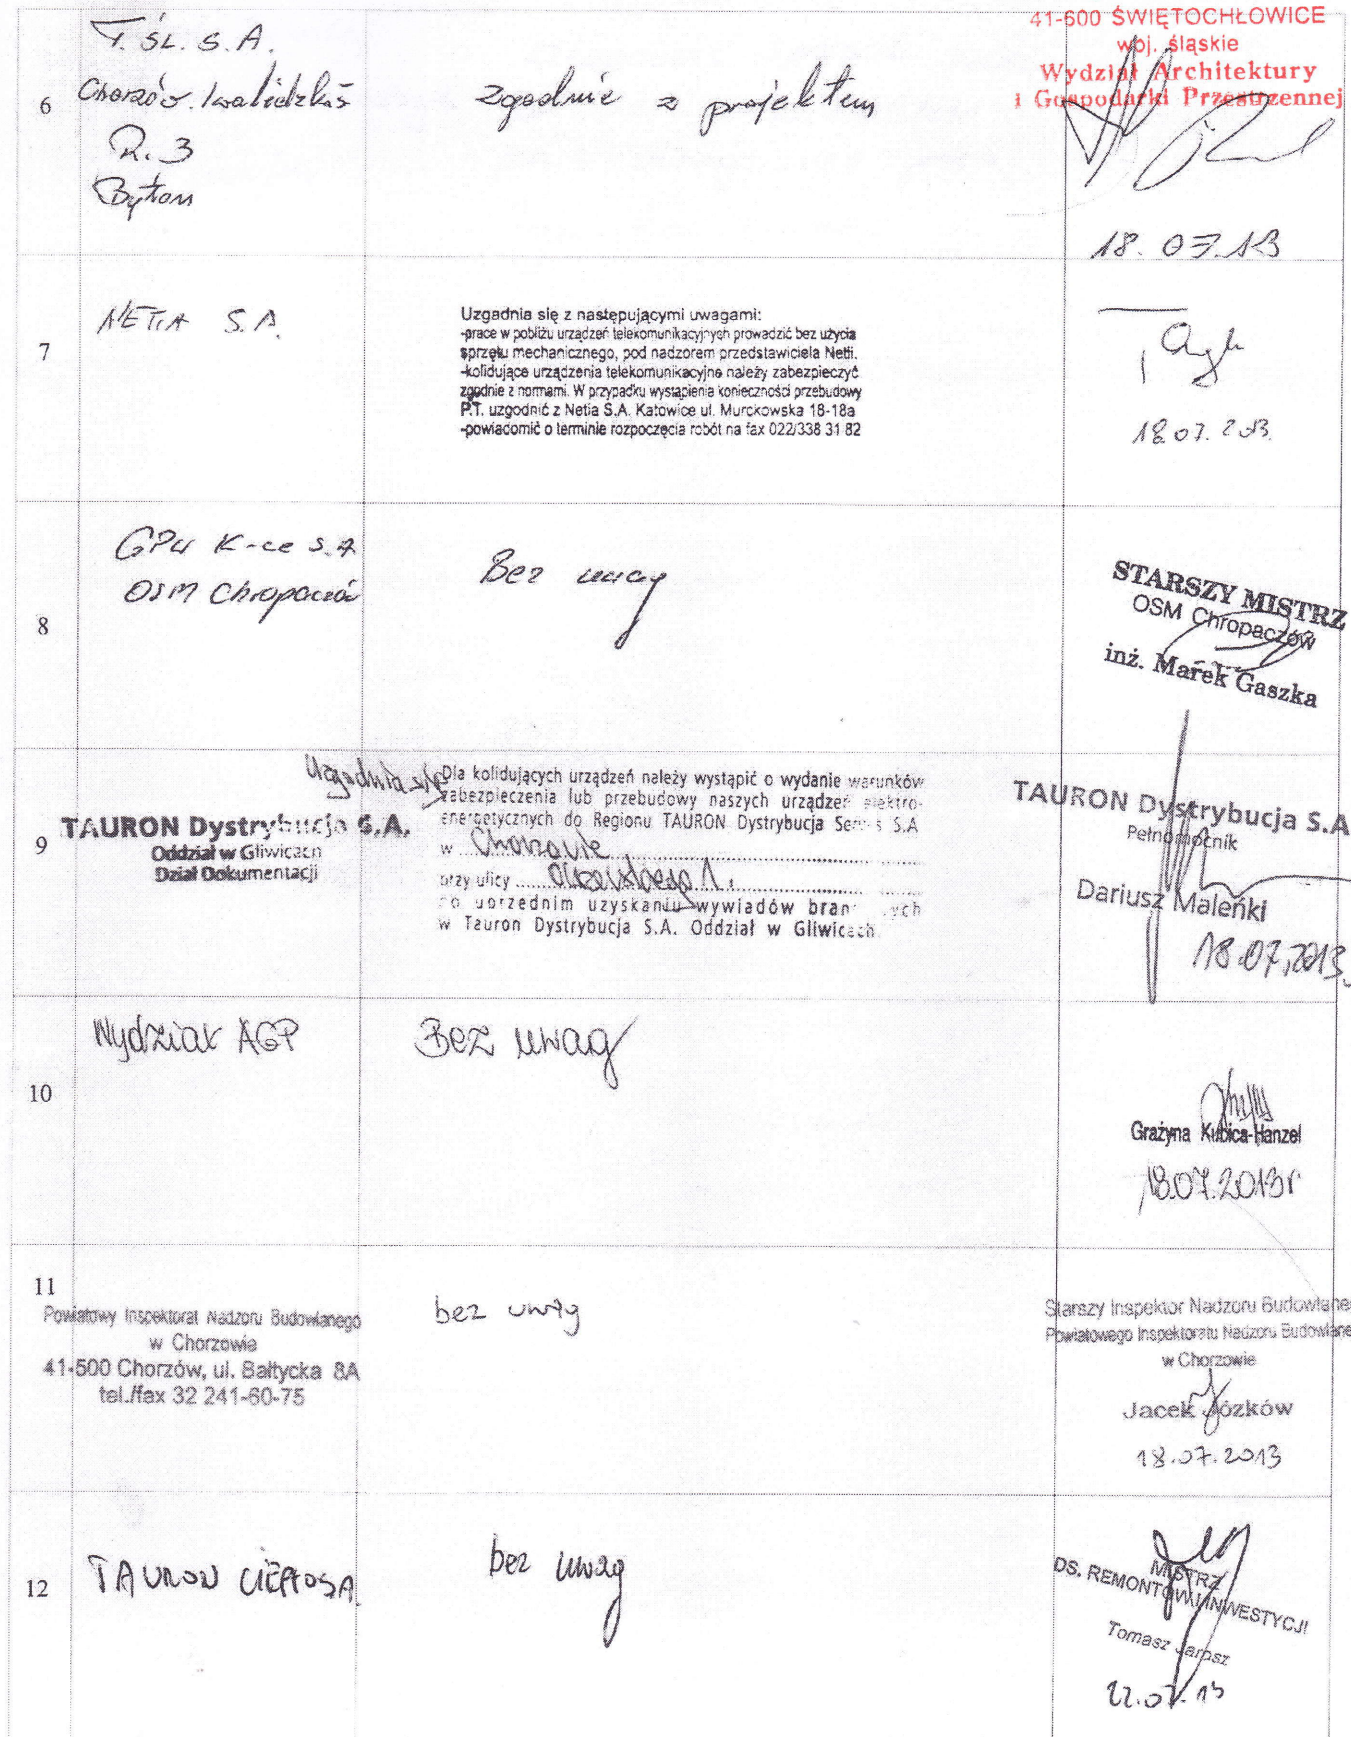 41-600 ŚWIĘTOCHŁOWICE
woj. śląskie
Wydział Architektury
i Gospodarki Przestrzennej
6
T. ŚL. S.A.
Chorzów
R. 3
Bytom
zgodnie z projektem
18.07.13
7
NETIA S.A.
Uzgadnia się z następującymi uwagami:
-prace w pobliżu urządzeń telekomunikacyjnych prowadzić bez użycia
sprzętu mechanicznego, pod nadzorem przedstawiciela Netii.
-kolidujące urządzenia telekomunikacyjne należy zabezpieczyć
zgodnie z normami. W przypadku wystąpienia konieczności przebudowy
P.T. uzgodnić z Netia S.A. Katowice ul. Murckowska 18-18a
-powiadomić o terminie rozpoczęcia robót na fax 022/338 31 82
18.07.2013.
8
GPW K-ce S.A
OSM Chropaczów
Bez uwag
STARSZY MISTRZ
OSM Chropaczów
inż. Marek Gaszka
9
TAURON Dystrybucja S.A.
Oddział w Gliwicach
Dział Dokumentacji
Uzgadnia się
Dla kolidujących urządzeń należy wystąpić o wydanie warunków
zabezpieczenia lub przebudowy naszych urządzeń elektro-
energetycznych do Regionu TAURON Dystrybucja Serwis S.A
w Chorzowie
przy ulicy 1.
po uprzednim uzyskaniu wywiadów branżowych
w Tauron Dystrybucja S.A. Oddział w Gliwicach
TAURON Dystrybucja S.A
Pełnomocnik
Dariusz Maleńki
18.07.2013
10
Wydział AGP
Bez uwag
Grażyna Kubica-Hanzel
18.07.2013r
11
Powiatowy Inspektorat Nadzoru Budowlanego
w Chorzowie
41-500 Chorzów, ul. Bałtycka 8A
tel./fax 32 241-60-75
bez uwag
Starszy Inspektor Nadzoru Budowlane
Powiatowego Inspektoratu Nadzoru Budowlane
w Chorzowie
Jacek Józków
18.07.2013
12
TAURON CIEPŁO SA
bez uwag
MISTRZ
DS. REMONTÓW I INWESTYCJI
Tomasz Jarosz
22.07.13